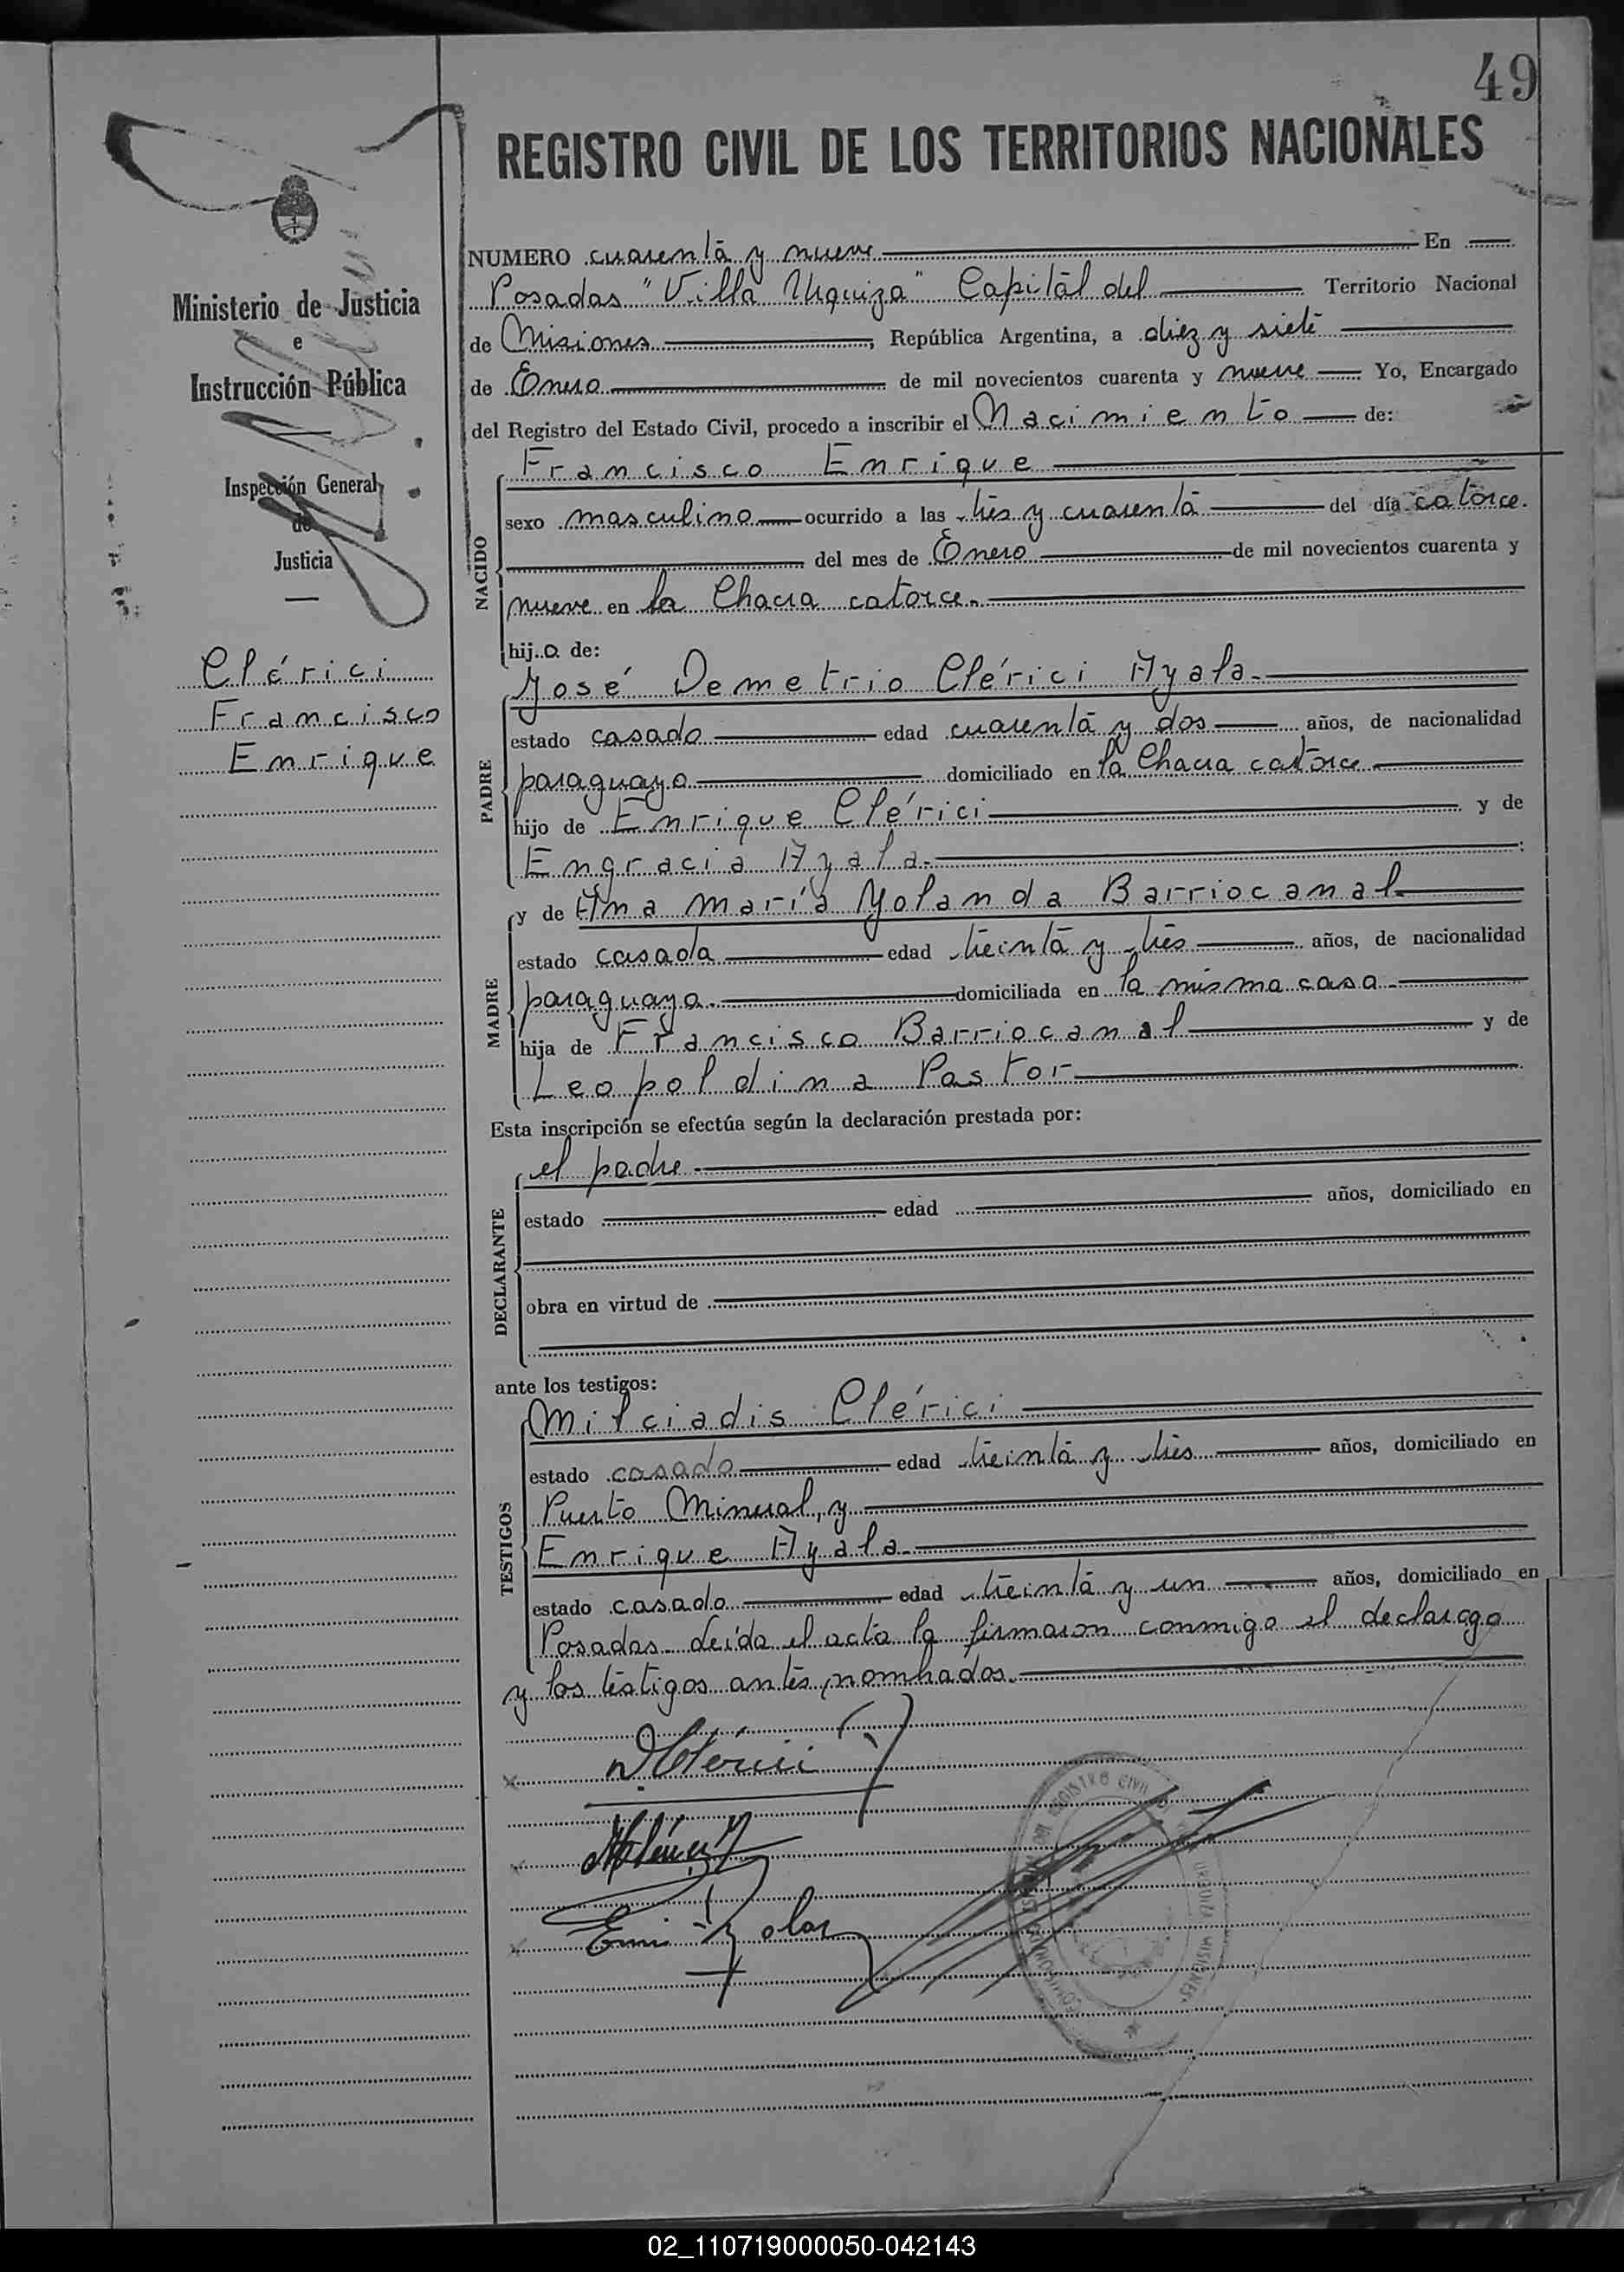 49
REGISTRO CIVIL DE LOS TERRITORIOS NACIONALES
Ministerio de Justicia
e
Instrucción Pública
Inspección General
de
Justicia
Clérici
Francisco
Enrique
NUMERO cuarenta y nueve En
Posadas "Villa Urquiza" Capital del Territorio Nacional
de Misiones, República Argentina, a diez y siete
de Enero de mil novecientos cuarenta y nueve Yo, Encargado
del Registro del Estado Civil, procedo a inscribir el Nacimiento de:
NACIDO
Francisco Enrique
sexo masculino ocurrido a las tres y cuarenta del día catorce.
del mes de Enero de mil novecientos cuarenta y
nueve en la Chacra catorce.
hij.o. de:
PADRE
José Demetrio Clérici Ayala.
estado casado edad cuarenta y dos años, de nacionalidad
paraguaya domiciliado en la Chacra catorce
hijo de Enrique Clérici y de
Engracia Ayala. :
MADRE
y de Ana María Yolanda Barriocanal
estado casada edad treinta y tres años, de nacionalidad
paraguaya. domiciliada en la misma casa.
hija de Francisco Barriocanal y de
Leopoldina Pastor
Esta inscripción se efectúa según la declaración prestada por:
DECLARANTE
el padre
estado edad años, domiciliado en
obra en virtud de
ante los testigos:
TESTIGOS
Milciadis Clérici
estado casado edad treinta y tres años, domiciliado en
Puerto Mineral, y
Enrique Ayala.
estado casado edad treinta y un años, domiciliado en
Posadas. Leída el acta la firmaron conmigo el
y los testigos antes nombrados.
REGISTRO CIVIL
URQUIZA MISIONES
02_110719000050-042143